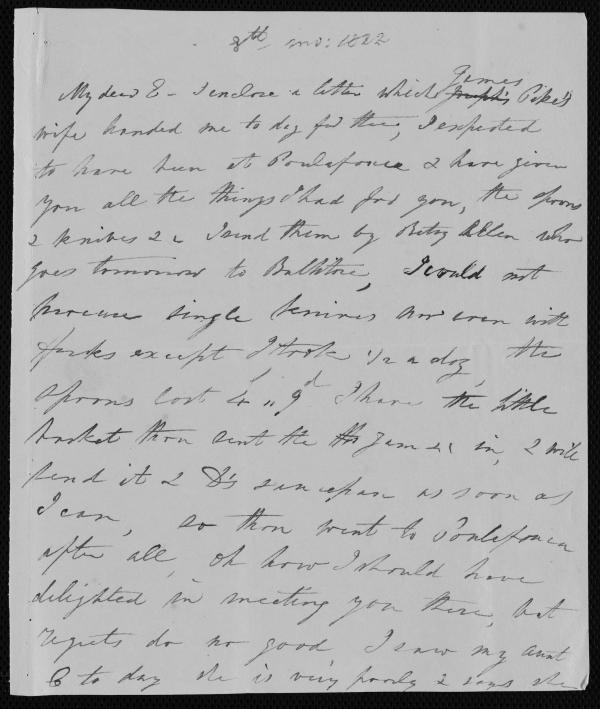 8th mo: 1822
My dear E - I enclose a letter which James Pike's
wife handed me to day for thee, I expected
to have been at Poulafouca & have given
you all the things I had for you, the spoons
& knives &c I send them by Betsy Allen who
goes tomorrow to Ballitore, I could not
procure single knives nor even with
forks except I took 1/2 a doz, the
spoons cost 4s " 9d I have the little
basket thou sent the in, & will
send it & D's saucepan as soon as
I can, so thou went to Poulafouca
after all, oh how I should have
delighted in meeting you there, but
regrets do no good I saw my aunt
C to day she is very poorly & says she